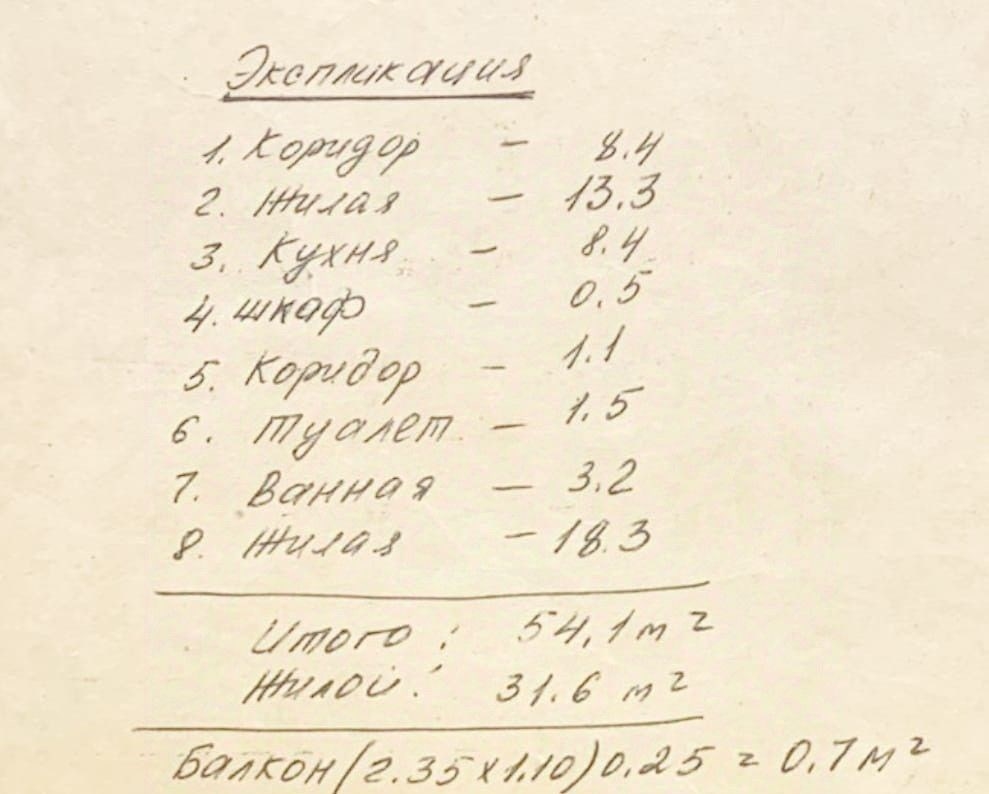 Экспликация
1. Коридор – 8.4
2. Жилая – 13.3
3. Кухня – 8.4
4. шкаф – 0.5
5. Коридор – 1.1
6. Туалет – 1.5
7. Ванная – 3.2
8. Жилая – 18.3
Итого: 54,1 м²
Жилой: 31.6 м²
Балкон (2.35 х 1.10) 0.25 = 0.7 м²